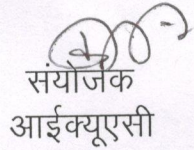 संयोजक
आईक्यूएसी